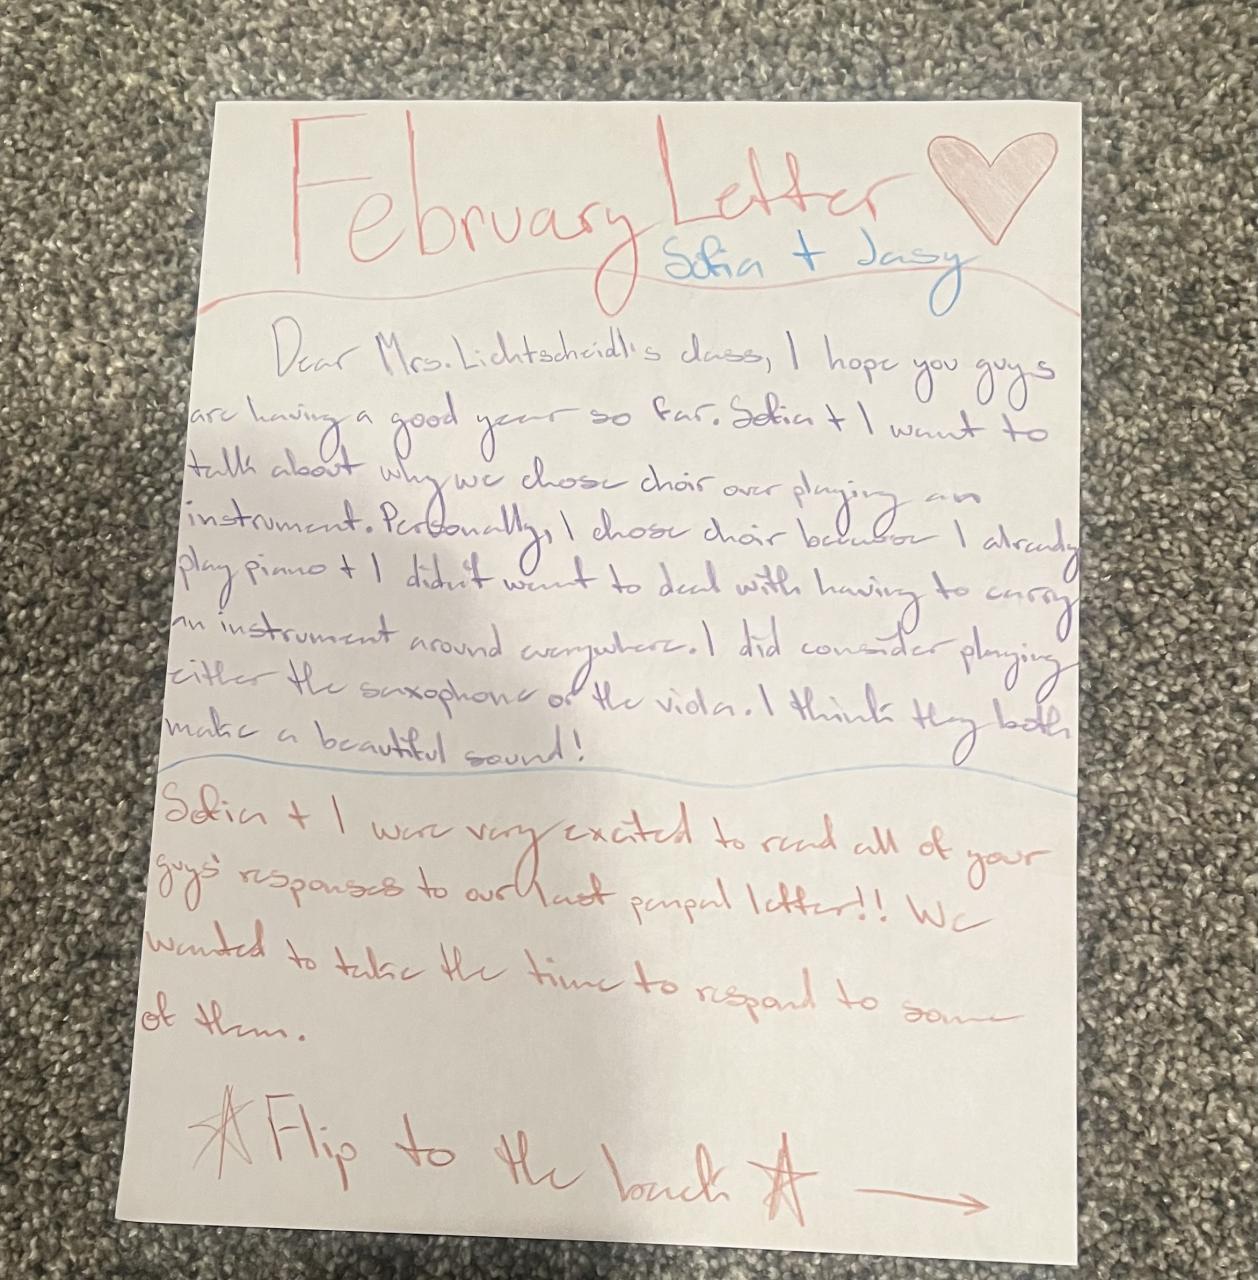 February Letter
Sofia + Jasy
Dear Mrs. Lichtscheidl's class, I hope you guys
are having a good year so far. Sofia + I want to
talk about why we chose choir over playing an
instrument. Personally, I chose choir because I already
play piano + I didn't want to deal with having to carry
an instrument around everywhere. I did consider playing
either the saxophone or the viola. I think they both
make a beautiful sound!
Sofia + I were very excited to read all of your
guys' responses to our last penpal letter!! We
wanted to take the time to respond to some
of them.
Flip to the back